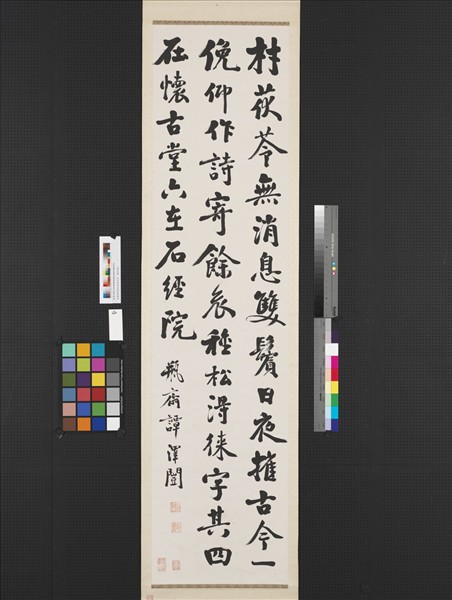 材茯苓無消息雙鬢日夜摧古今一
俛仰作詩寄餘哀種松得徠字其四
在懷古堂六在石經院
瓶齋譚澤闓